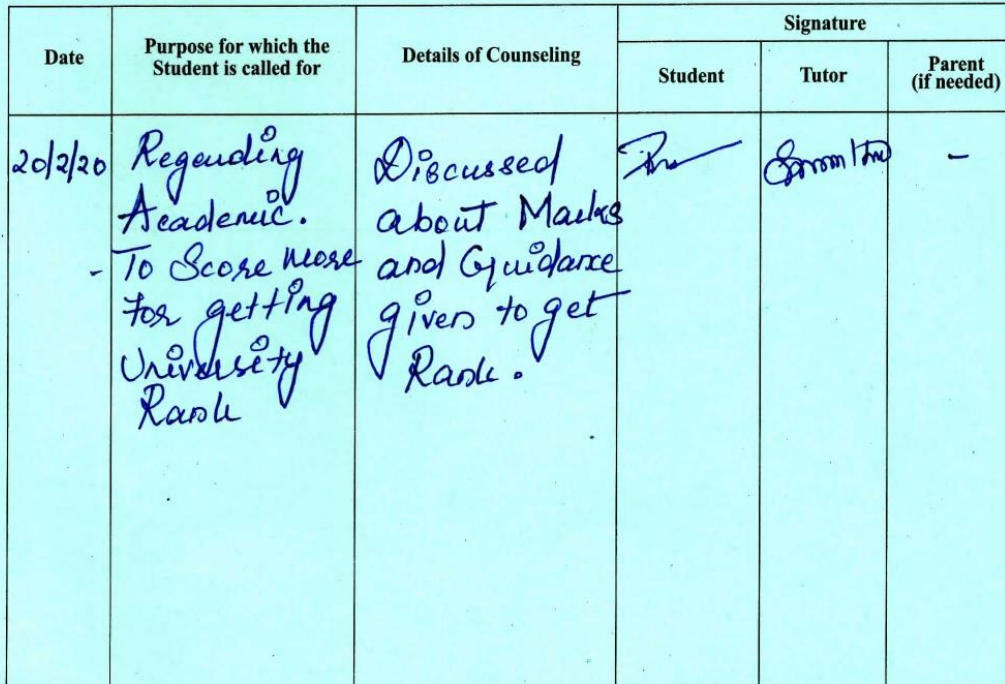 Signature
Date
Purpose for which the
Student is called for
Details of Counseling
Student
Tutor
Parent
(if needed)
20/2/20
Regarding
Academic.
- To Score more
for getting
University
Rank
Discussed
about Marks
and Guidance
given to get
Rank.
-